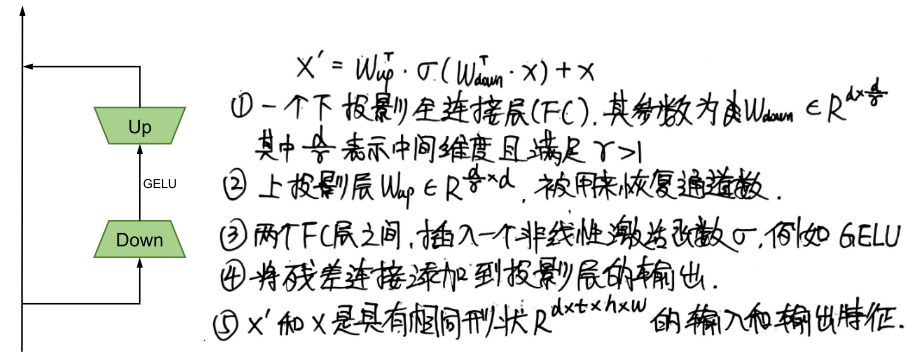 Up
GELU
Down
X′ = W_up^T · σ(W_down^T · x) + x
① 一个下投影全连接层(FC),其参数为 W_down ∈ R^{d×d/γ}
其中 d/γ 表示中间维度且满足 γ>1
② 上投影层 W_up ∈ R^{d/γ×d},被用来恢复通道数.
③ 两个FC层之间,插入一个非线性激活函数σ,例如 GELU
④ 将残差连接添加到投影层的输出.
⑤ X′和X是具有相同形状R^{d×t×h×w} 的输入和输出特征.